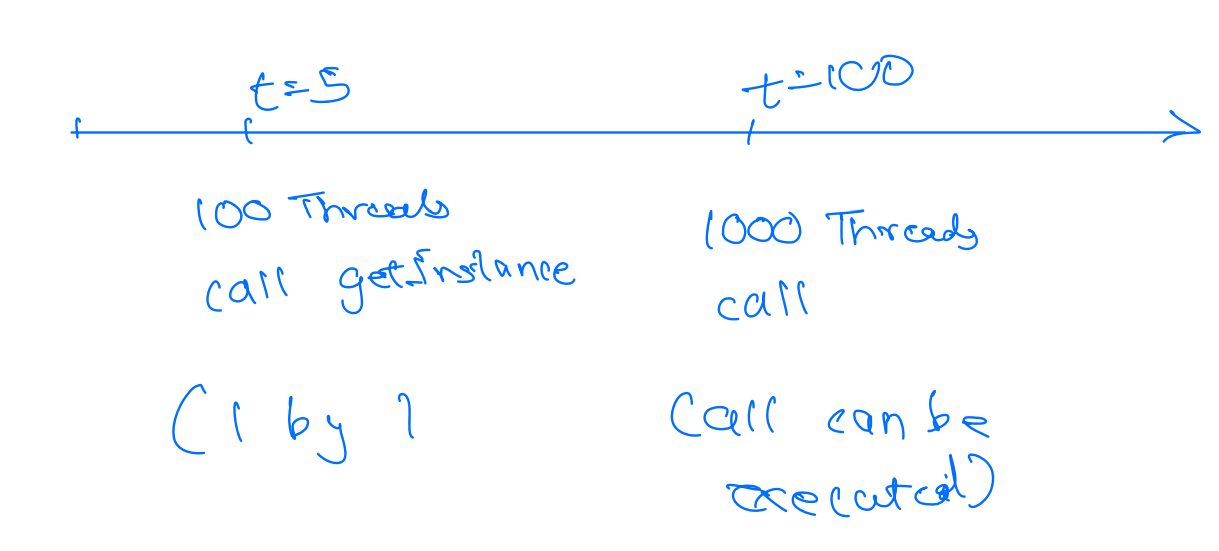 t=5
t=100
100 Threads
call getInstance
1000 Threads
call
(1 by 1
(all can be
executed)